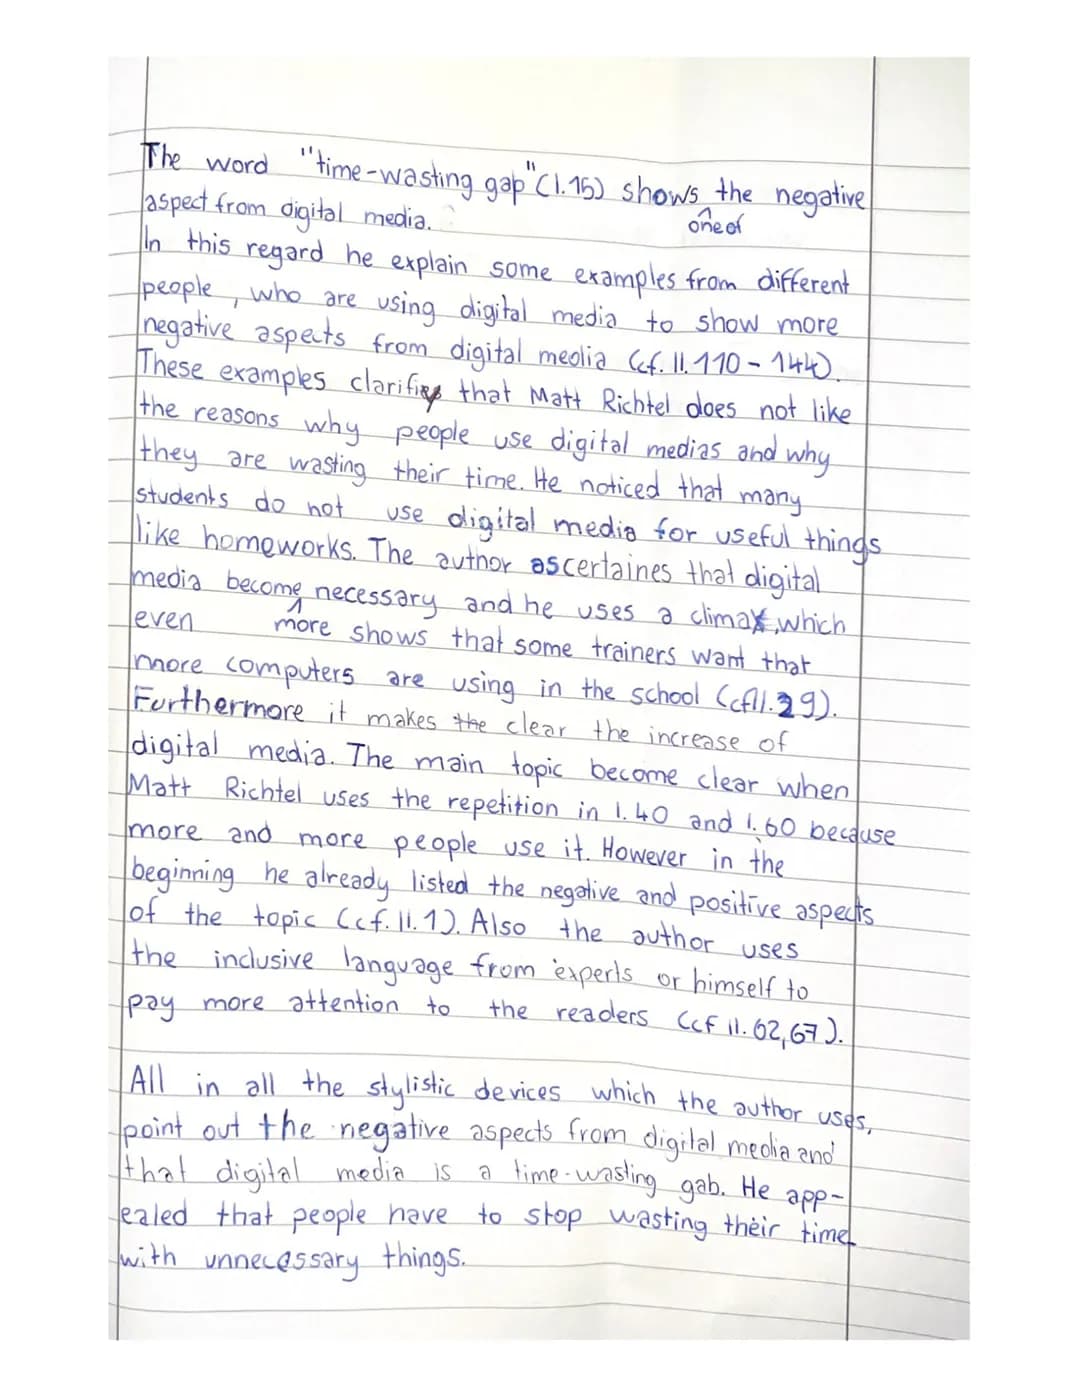 The word "time-wasting gap" (l. 15) shows the negative
one of
aspect from digital media.
In this regard he explain some examples from different
people, who are using digital media to show more
negative aspects from digital media (cf. ll. 110 - 144).
These examples clarifiey that Matt Richtel does not like
the reasons why people use digital medias and why
they are wasting their time. He noticed that many
students do not use digital media for useful things
like homeworks. The author ascertaines that digital
media become necessary and he uses a climax, which
even more shows that some trainers want that
more computers are using in the school (cf ll. 29).
Furthermore it makes the clear the increase of
digital media. The main topic become clear when
Matt Richtel uses the repetition in l. 40 and l. 60 because
more and more people use it. However in the
beginning he already listed the negative and positive aspects
of the topic (cf. ll. 1). Also the author uses
the inclusive language from experts or himself to
pay more attention to the readers (cf ll. 62, 67).
All in all the stylistic devices which the author uses,
point out the negative aspects from digital media and
that digital media is a time-wasting gab. He app-
ealed that people have to stop wasting their time
with unnecessary things.